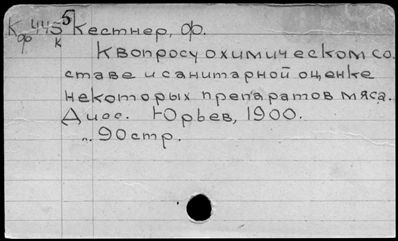 Кф 4455 Кестнер, Ф.
к
К вопросу о химическом со
ставе и санитарной оценке
некоторых препаратов мяса.
Дисс. Юрьев, 1900.
90 стр.